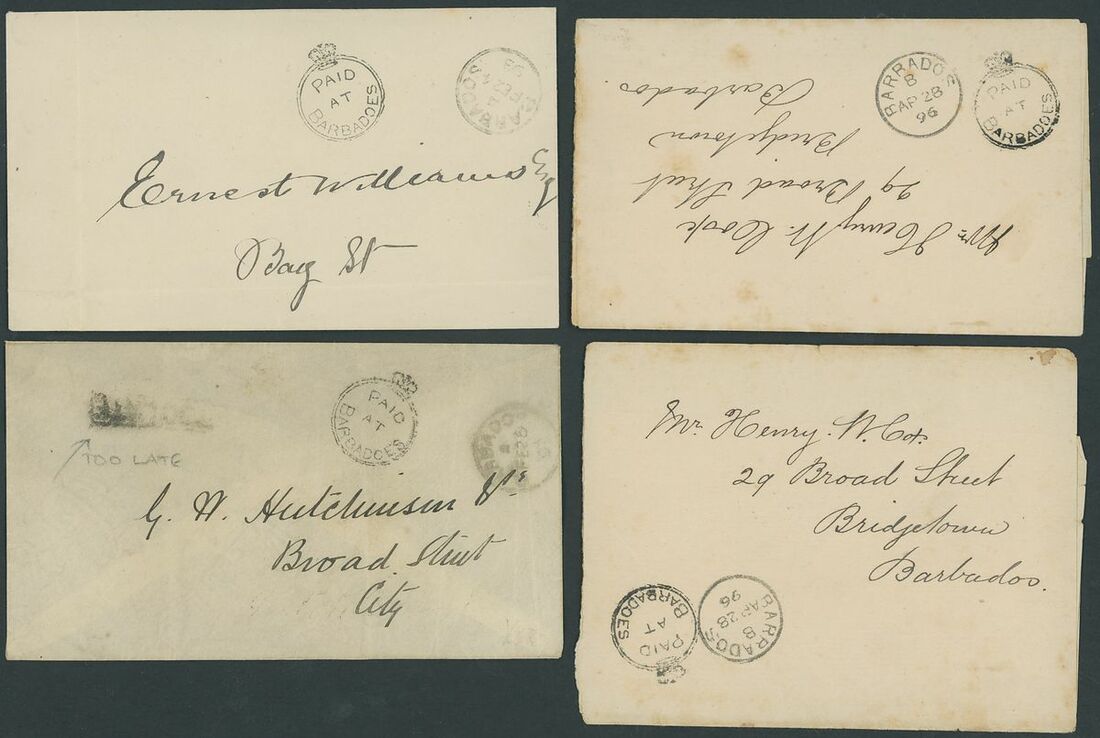 PAID
AT
BARBADOES
BARBADOS
FE 4
Ernest Williams Esq
Bay St
BARBADOS
B
AP 28
96
PAID
AT
BARBADOES
Mr. Henry W. Cox
29 Broad Street
Bridgetown
Barbados
TOO LATE
PAID
AT
BARBADOES
FE 26
G. W. Hutchinson
Broad Street
City
Mr. Henry. W. Cox.
29 Broad Street
Bridgetown
Barbados.
PAID
AT
BARBADOES
BARBADOS
B
AP 28
96